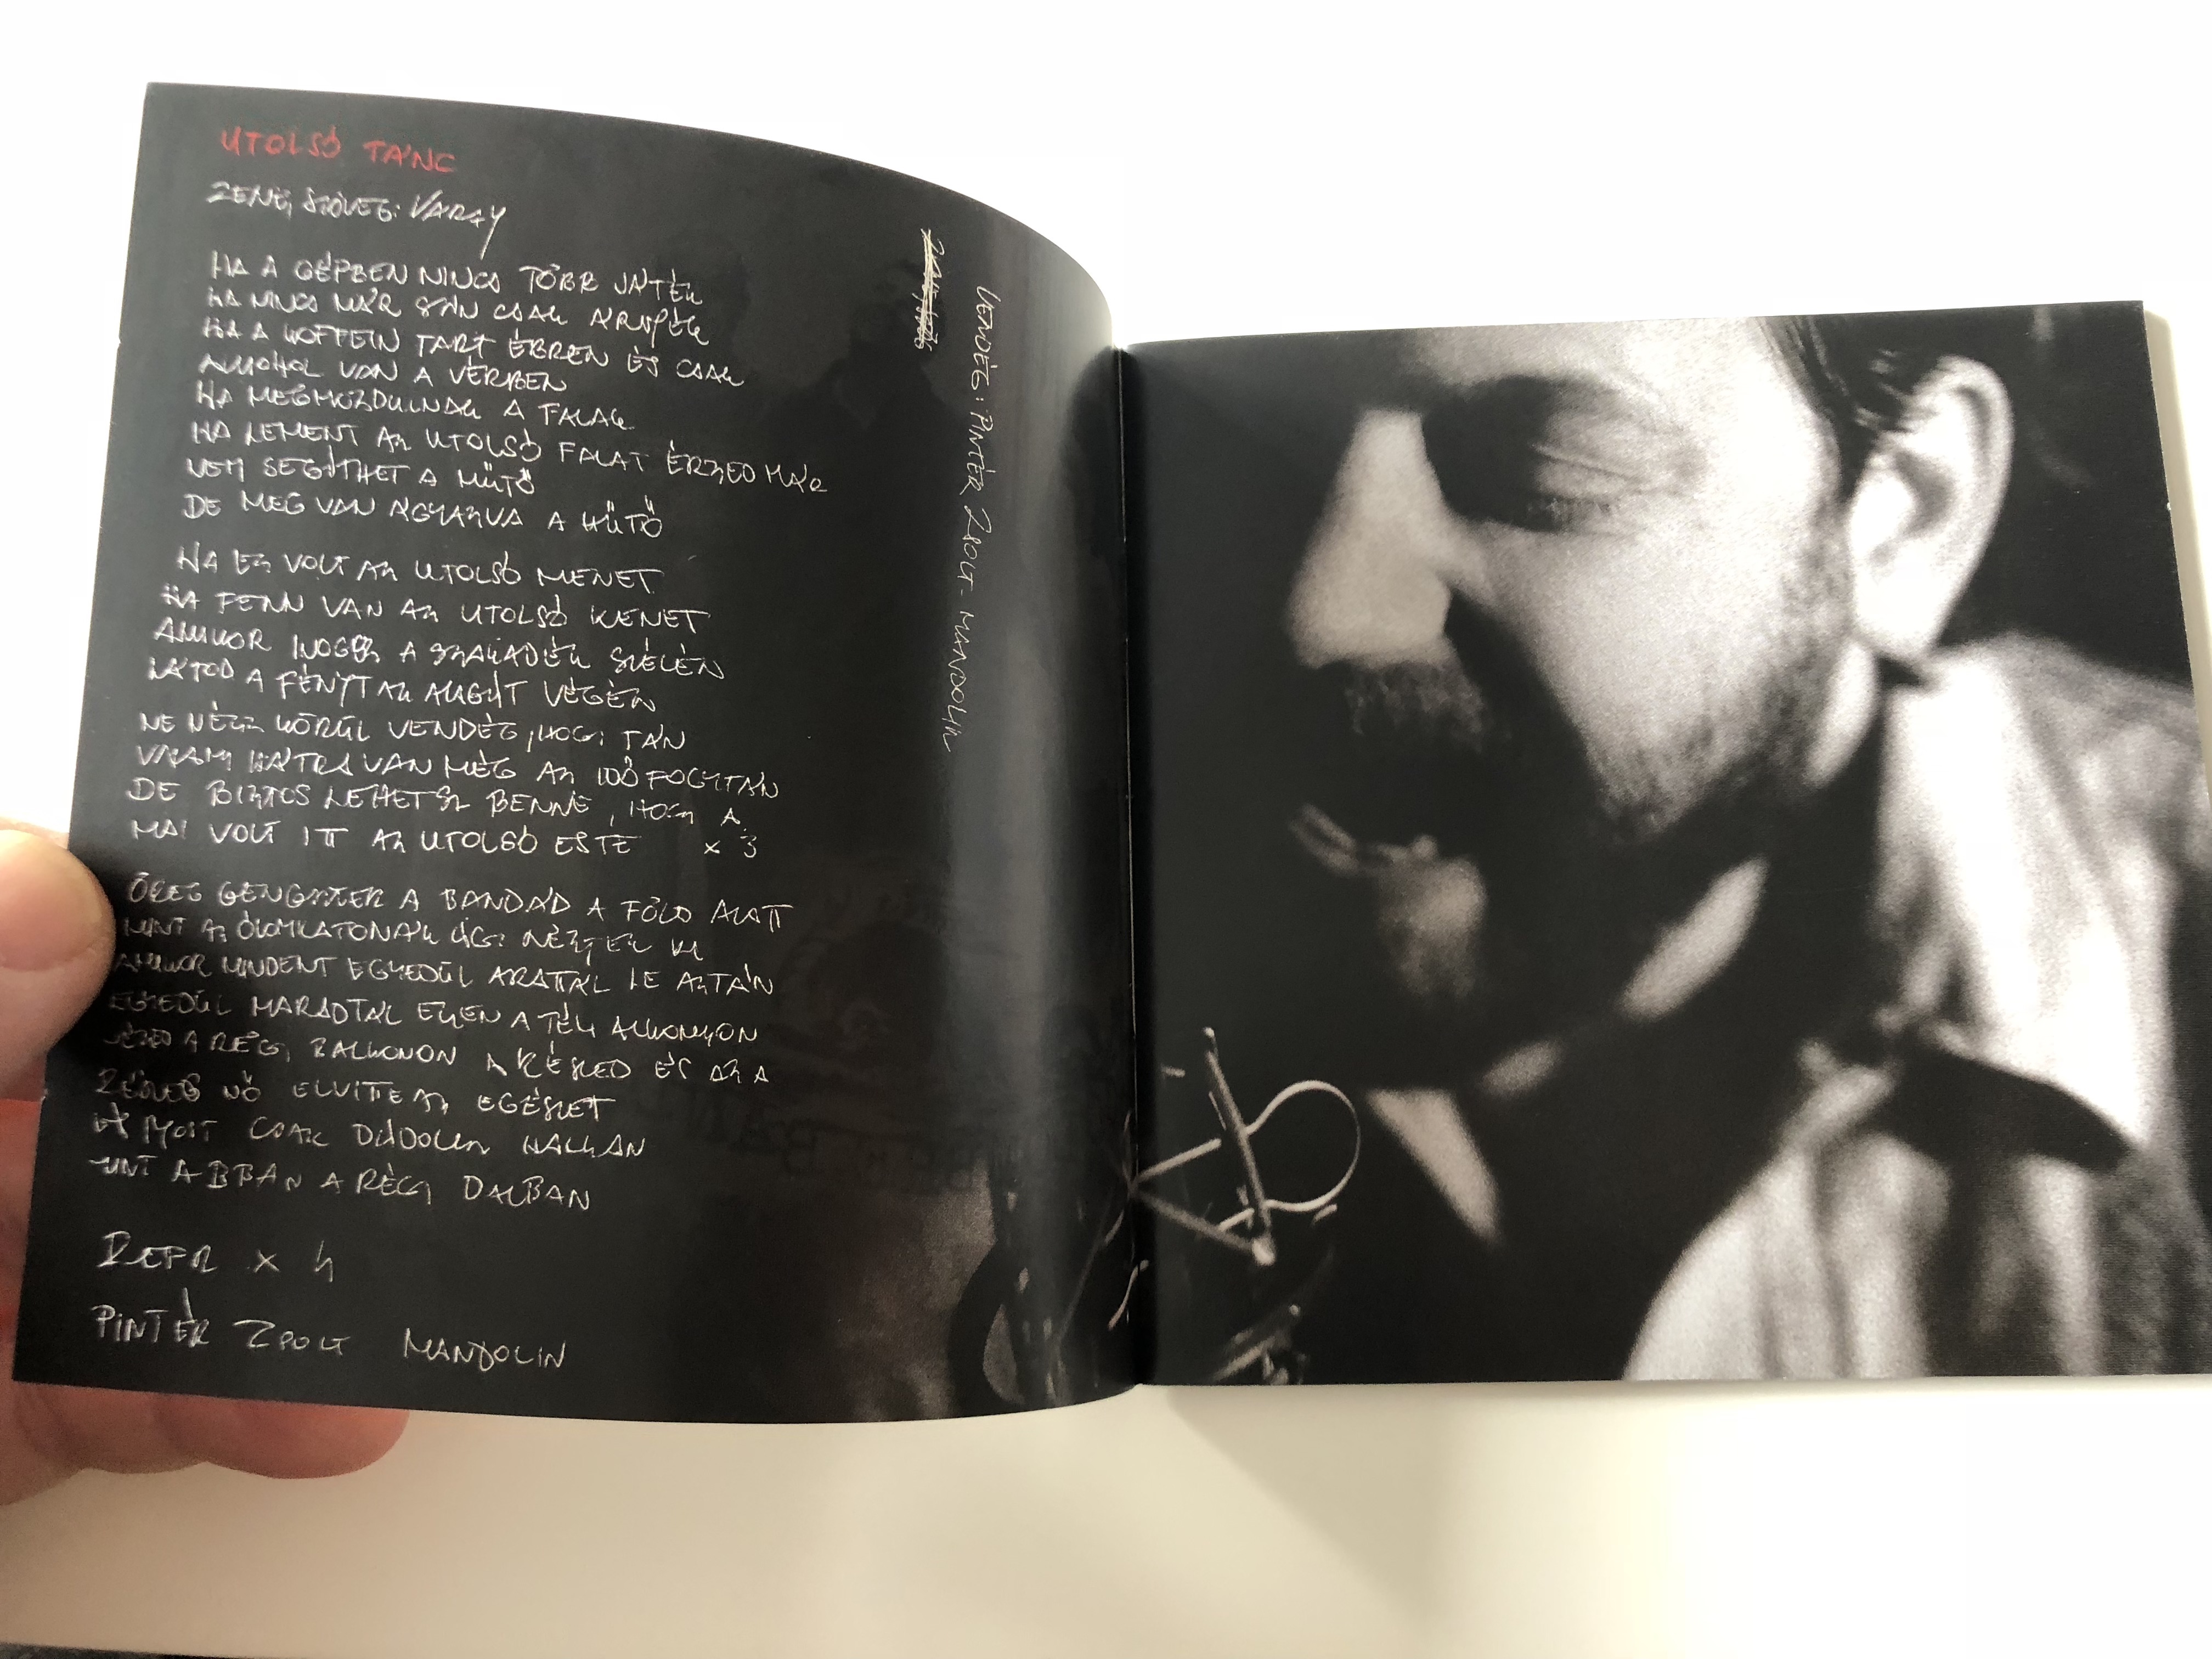 UTOLSÓ TÁNC
ZENE, SZÖVEG: VÁRAY
HA A GÉPBEN NINCS TÖBB JÁTÉK
HA NINCS MÁR SZÍN CSAK ÁRNYÉK
HA A KOFFEIN TART ÉBREN ÉS CSAK
ALKOHOL VAN A VÉRBEN
HA MEGMOZDULNAK A FALAK
HA LEMENT AZ UTOLSÓ FALAT ÉRZED MÁR
NEM SEGÍTHET A MŰTŐ
DE MEG VAN ÁGYAZVA A HŰTŐ
HA EZ VOLT AZ UTOLSÓ MENET
HA FENN VAN AZ UTOLSÓ KENET
AMIKOR INOGSZ A SZAKADÉK SZÉLÉN
LÁTOD A FÉNYT AZ ALAGÚT VÉGÉN
NE NÉZZ KÖRÜL VENDÉG, HOGY TÁN
VALAMI HÁTRA VAN MÉG AZ IDŐ FOGYTÁN
DE BIZTOS LEHETSZ BENNE, HOGY A
MAI VOLT ITT AZ UTOLSÓ ESTE x 3
ÖREG GENGSZTER A BANDÁD A FÖLD ALATT
MINT AZ ÓLOMKATONÁK ÚGY NÉZTEK KI
AMIKOR MINDENT EGYEDÜL ARATTÁL LE AZTÁN
EGYEDÜL MARADTÁL EZEN A TÉLI ALKONYON
NÉZED A RÉGI BALKONON A KÉSED ÉS AZ A
RÉSZEG NŐ ELVITTE AZ EGÉSZET
MOST CSAK DÚDOLSZ HALKAN
MINT ABBAN A RÉGI DALBAN
REFR x 4
PINTÉR ZSOLT MANDOLIN
VENDÉG: PINTÉR ZSOLT - MANDOLIN